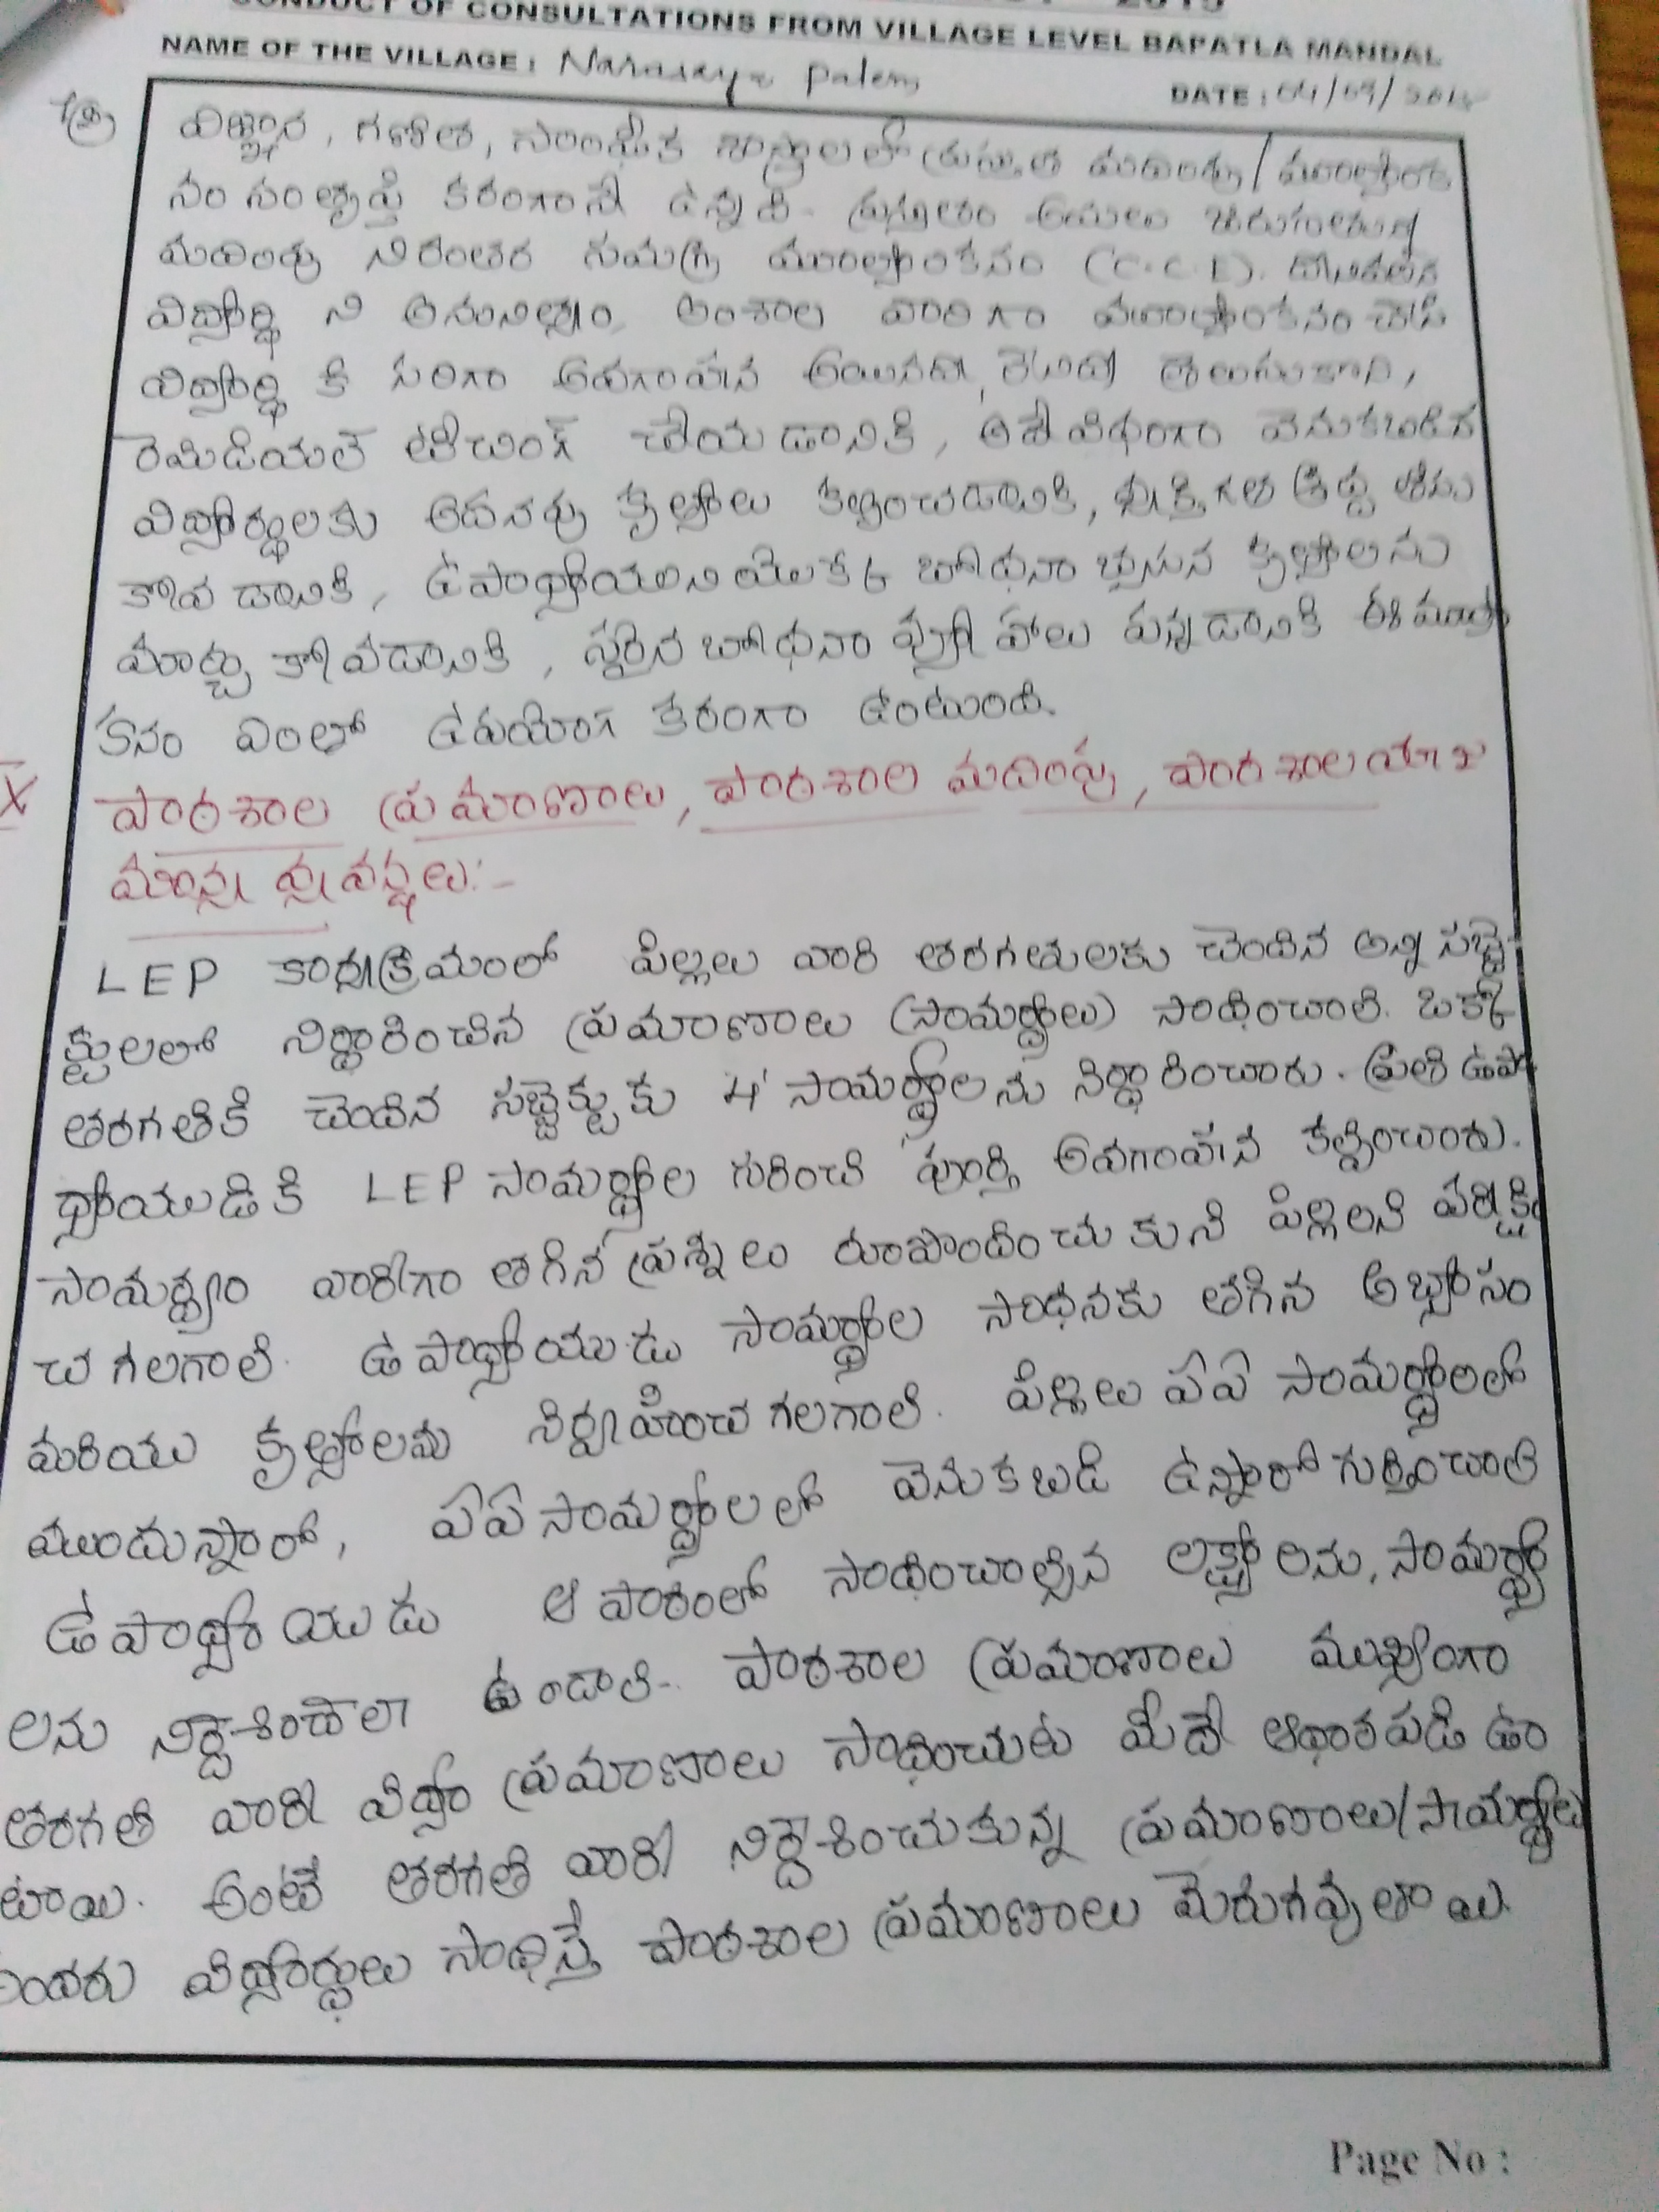 CONDUCT OF CONSULTATIONS FROM VILLAGE LEVEL BAPATLA MANDAL
NAME OF THE VILLAGE : Narasaya Palem
DATE : 04/09/
విజ్ఞాన, గణిత, సాంఘిక శాస్త్రాలలో ప్రస్తుత మదింపు/మూల్యాంక
నం సంతృప్తి కరంగానే ఉన్నది. ప్రస్తుతం అమలు జరుగుతున్న
మదింపు నిరంతర సమగ్ర మూల్యాంకనం (C.C.E).
విద్యార్థి ని అనునిత్యం అంశాల వారిగా మూల్యాంకనం చేసి
విద్యార్థి కి సరిగా అవగాహన అయినదా, లేదా తెలుసుకొని,
రెమిడియల్ టీచింగ్ చేయడానికి, అదేవిధంగా వెనుకబడిన
విద్యార్థులకు అదనపు కృత్యాలు కల్పించడానికి, వ్యక్తిగత శ్రద్ధ తీసు
కోవడానికి, ఉపాధ్యాయుని యొక్క బోధనాభ్యసన కృత్యాలను
మార్చు కోవడానికి, సరైన బోధనా వ్యూహాలు పన్నడానికి ఈ మూల్యాం
కనం ఎంతో ఉపయోగ కరంగా ఉంటుంది.
X పాఠశాల ప్రమాణాలు, పాఠశాల మదింపు, పాఠశాల యాజ
మాన్య వ్యవస్థలు:-
LEP కార్యక్రమంలో పిల్లలు వారి తరగతులకు చెందిన అన్ని సబ్జె
క్టులలో నిర్ధారించిన ప్రమాణాలు (సామర్థ్యాలు) సాధించాలి. ఒక్కో
తరగతికి చెందిన సబ్జెక్టుకు 4 సామర్థ్యాలను నిర్ధారించారు. ప్రతి ఉపా
ధ్యాయుడికి LEP సామర్థ్యాల గురించి పూర్తి అవగాహన కల్పించారు.
సామర్థ్యం వారీగా తగిన ప్రశ్నలు రూపొందించుకుని పిల్లలని పరీక్షిం
చ గలగాలి. ఉపాధ్యాయుడు సామర్థ్యాల సాధనకు తగిన అభ్యాసం
మరియు కృత్యాలను నిర్వహించ గలగాలి. పిల్లలు ఏఏ సామర్థ్యాలలో
ముందున్నారో, ఏఏ సామర్థ్యాలలో వెనుకబడి ఉన్నారో గుర్తించాలి
ఉపాధ్యాయుడు ఆ పాఠంలో సాధించాల్సిన లక్ష్యాలను, సామర్థ్యా
లను నిర్దేశించేలా ఉండాలి. పాఠశాల ప్రమాణాలు ముఖ్యంగా
తరగతి వారీ విద్యా ప్రమాణాలు సాధించుట మీదే ఆధారపడి ఉం
టాయి. అంటే తరగతి వారీ నిర్దేశించుకున్న ప్రమాణాలు/సామర్థ్యాలు
అందరు విద్యార్థులు సాధిస్తే పాఠశాల ప్రమాణాలు మెరుగవుతాయి.
Page No :